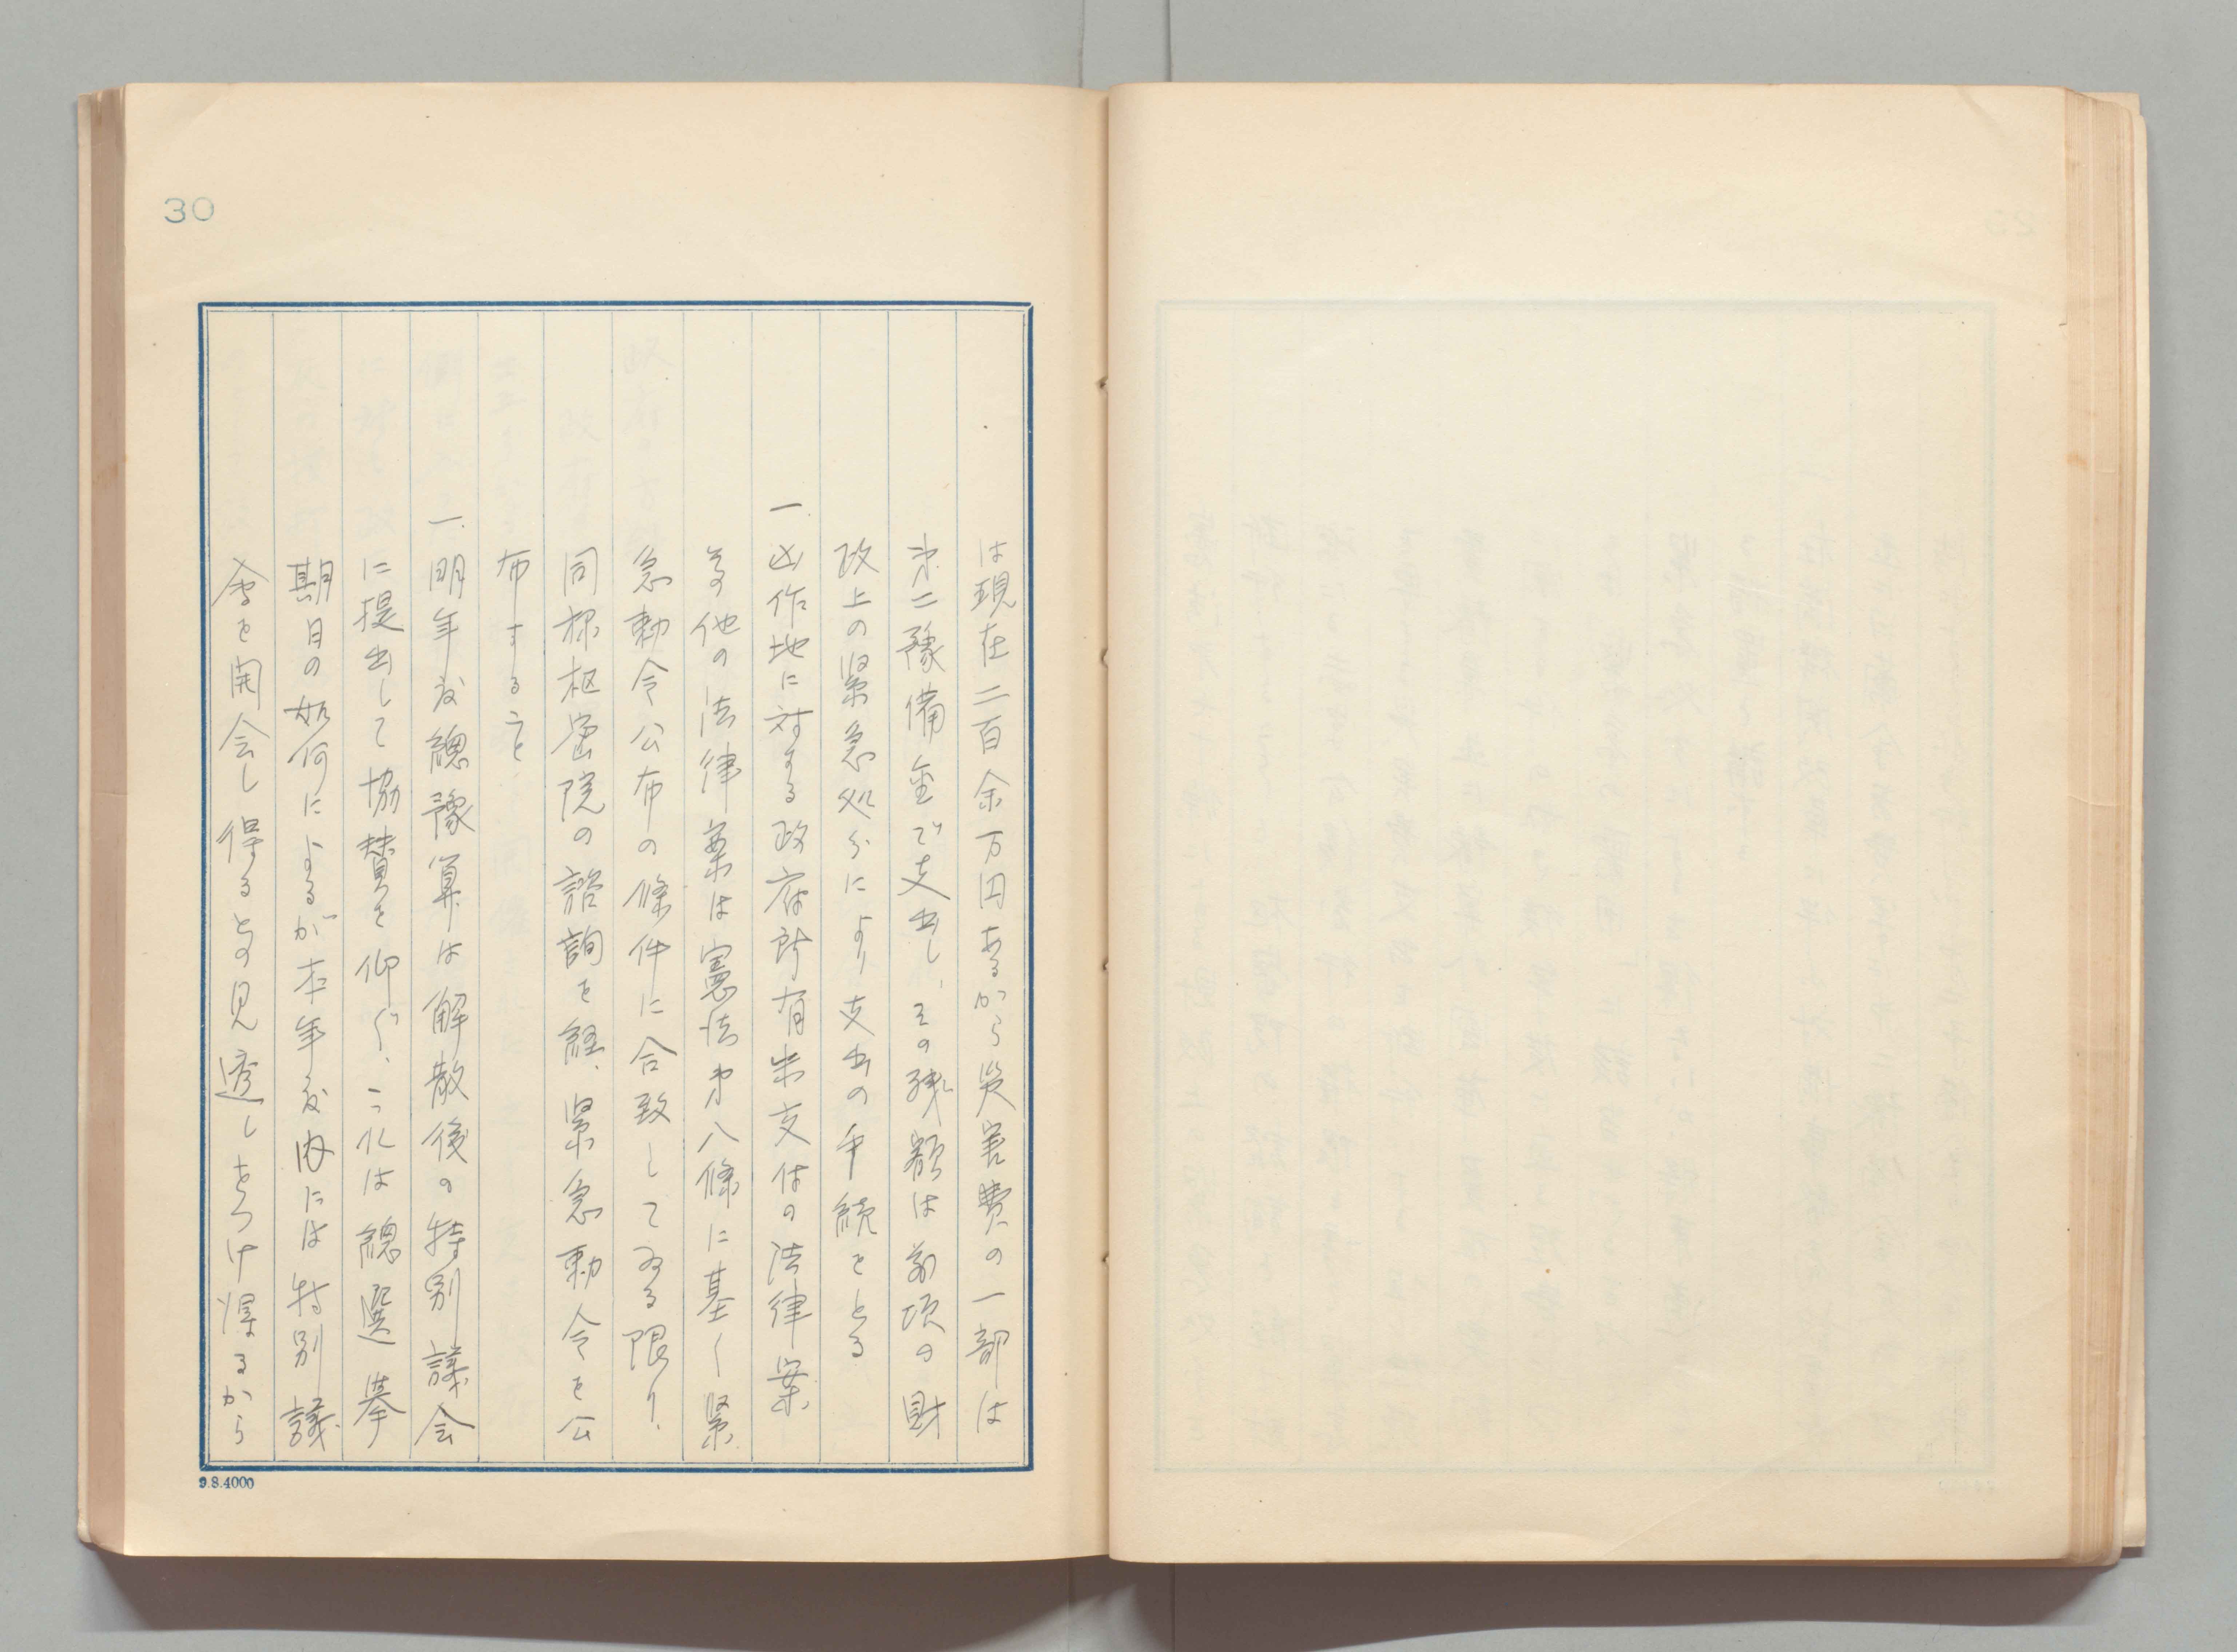 30
は現在二百余万円あるから災害費の一部は
第二豫備金で支出し、その残額は前項の財
政上の緊急処分により支出の手続をとる
一、凶作地に対する政府所有米交付の法律案
等他の法律案は憲法第八條に基く緊
急勅令公布の條件に合致してゐる限り、
同様枢密院の諮詢を経、緊急勅令を公
布すること
一、明年度總豫算は解散後の特別議会
に提出して協賛を仰ぐ、これは總選挙
期日の如何によるが本年度内には特別議
会を開会し得るとの見透しをつけ得るから
9.8.4000